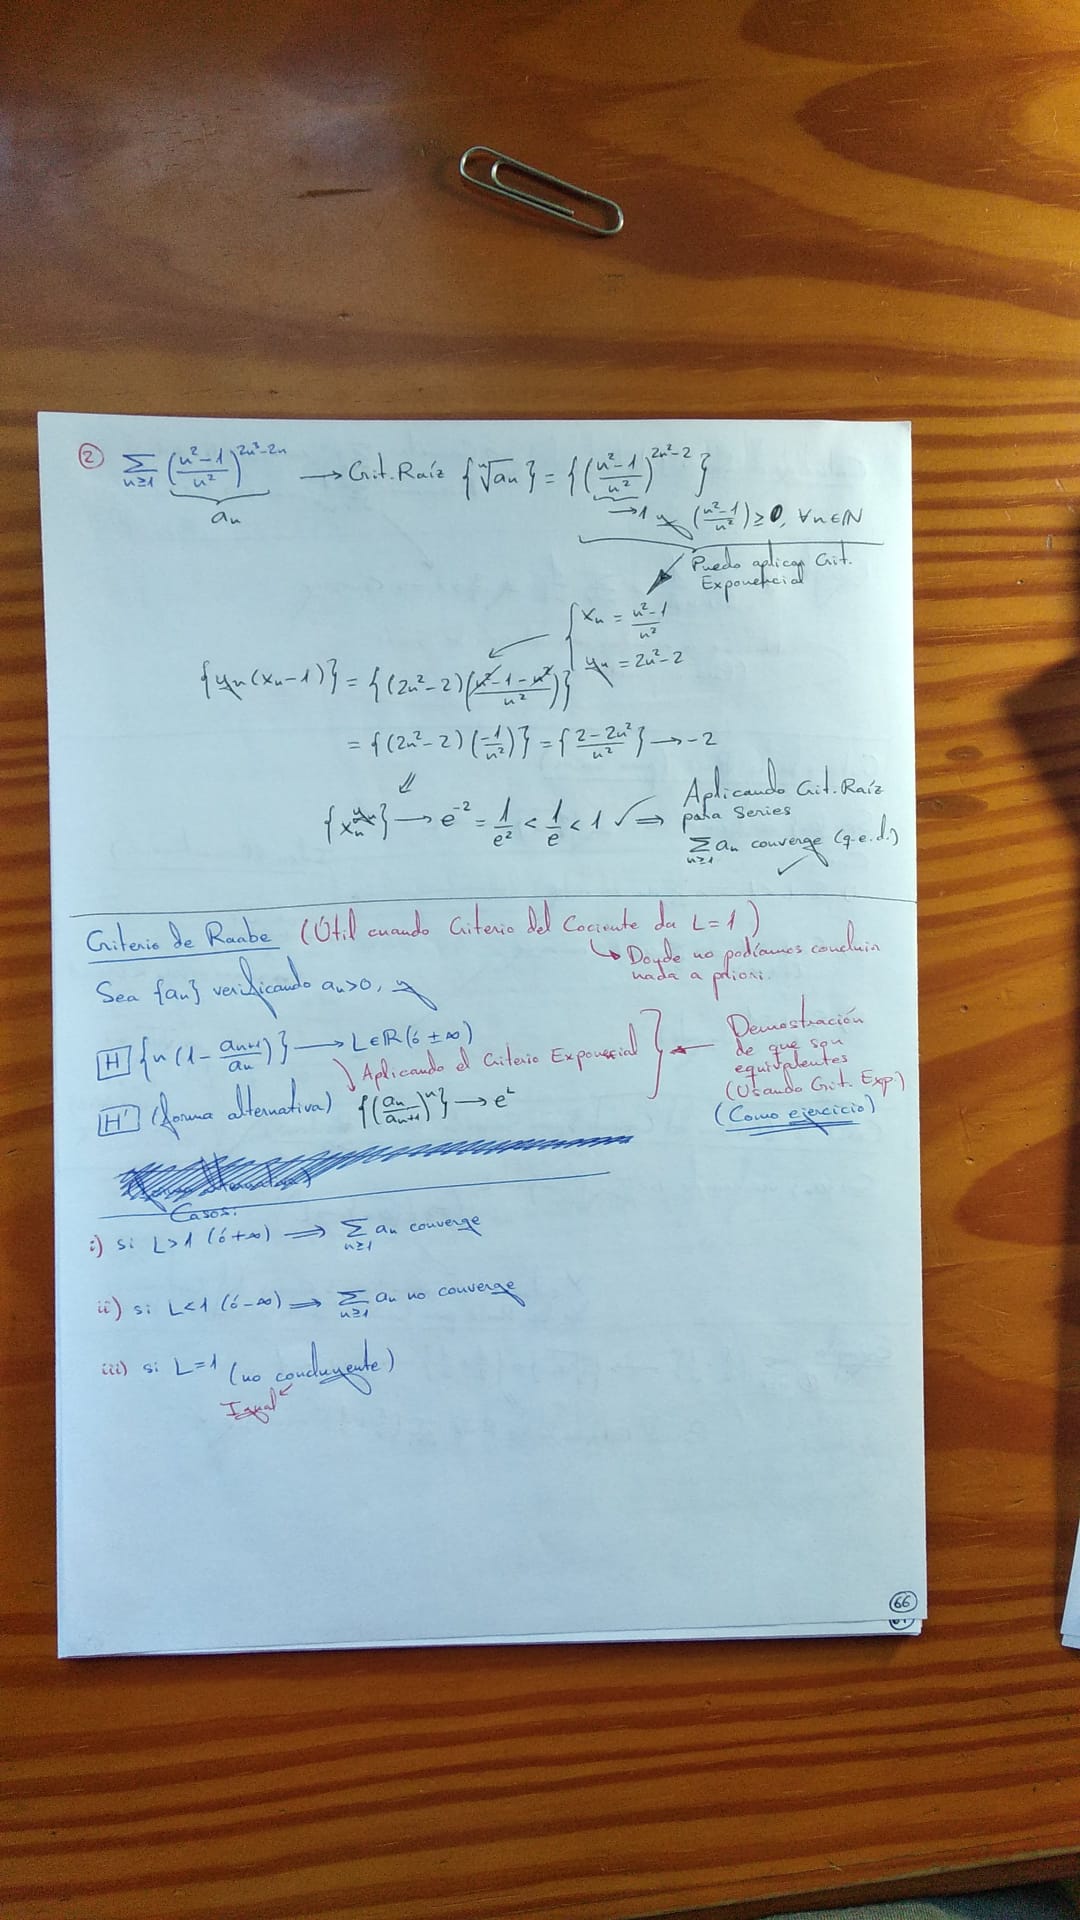 ② ∑_{n≥1} ((n²-1)/n²)^{2n³-2n} ⟶ Crit. Raíz {ⁿ√an} = {((n²-1)/n²)^{2n²-2}}
an
→1 y ((n²-1)/n²) ≥ 0, ∀n∈ℕ
Puedo aplicar Crit.
Exponencial
{ xn = (n²-1)/n²
yn = 2n²-2
{yn(xn-1)} = {(2n²-2)((n²-1-n²)/n²)}
= {(2n²-2)(-1/n²)} = {(2-2n²)/n²} → -2
⇓
{xn^{yn}} ⟶ e^{-2} = 1/e² < 1/e < 1 ✓ ⟹ Aplicando Crit. Raíz
para Series
∑_{n≥1} an converge (q.e.d.)
Criterio de Raabe (Útil cuando Criterio del Cociente da L=1)
↳ Donde no podíamos concluir
nada a priori.
Sea {an} verificando an>0, y
[H] {n(1 - a_{n+1}/an)} ⟶ L∈ℝ (ó ±∞)
Aplicando el Criterio Exponencial
[H'] (forma alternativa) {(an/a_{n+1})^n} ⟶ e^L
Demostración
de que son
equivalentes
(Usando Crit. Exp.)
(Como ejercicio)
Casos:
i) si L>1 (ó +∞) ⟹ ∑_{n≥1} an converge
ii) si L<1 (ó -∞) ⟹ ∑_{n≥1} an no converge
iii) si L=1 (no concluyente)
Igual
66